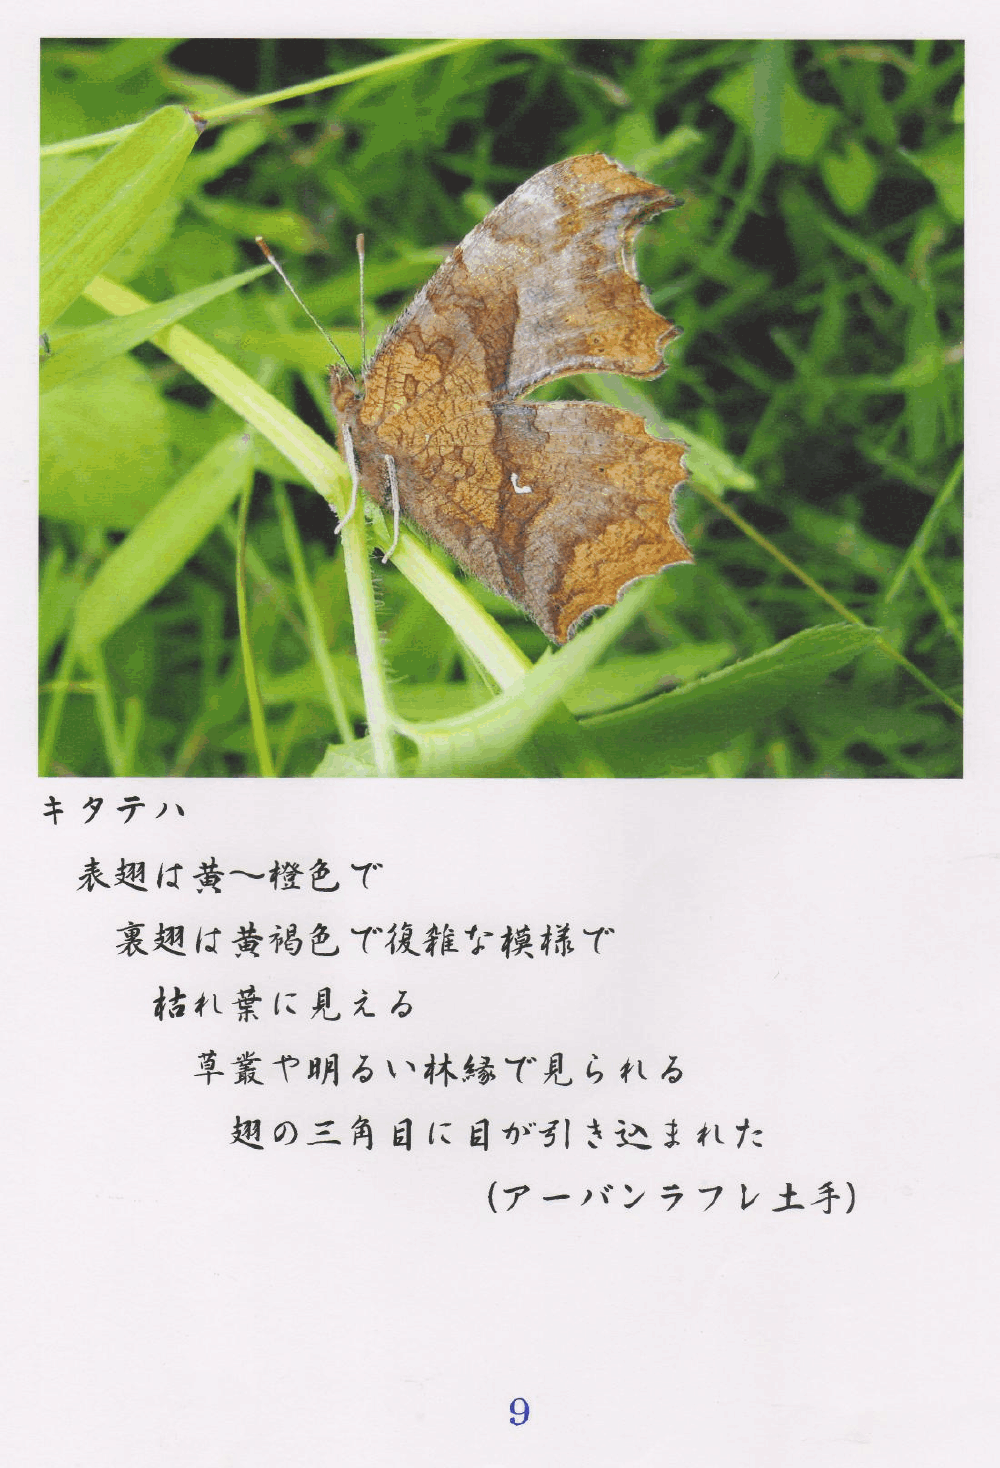 キタテハ
表翅は黄～橙色で
裏翅は黄褐色で復雑な模様で
枯れ葉に見える
草叢や明るい林縁で見られる
翅の三角目に目が引き込まれた
(アーバンラフレ土手)
9